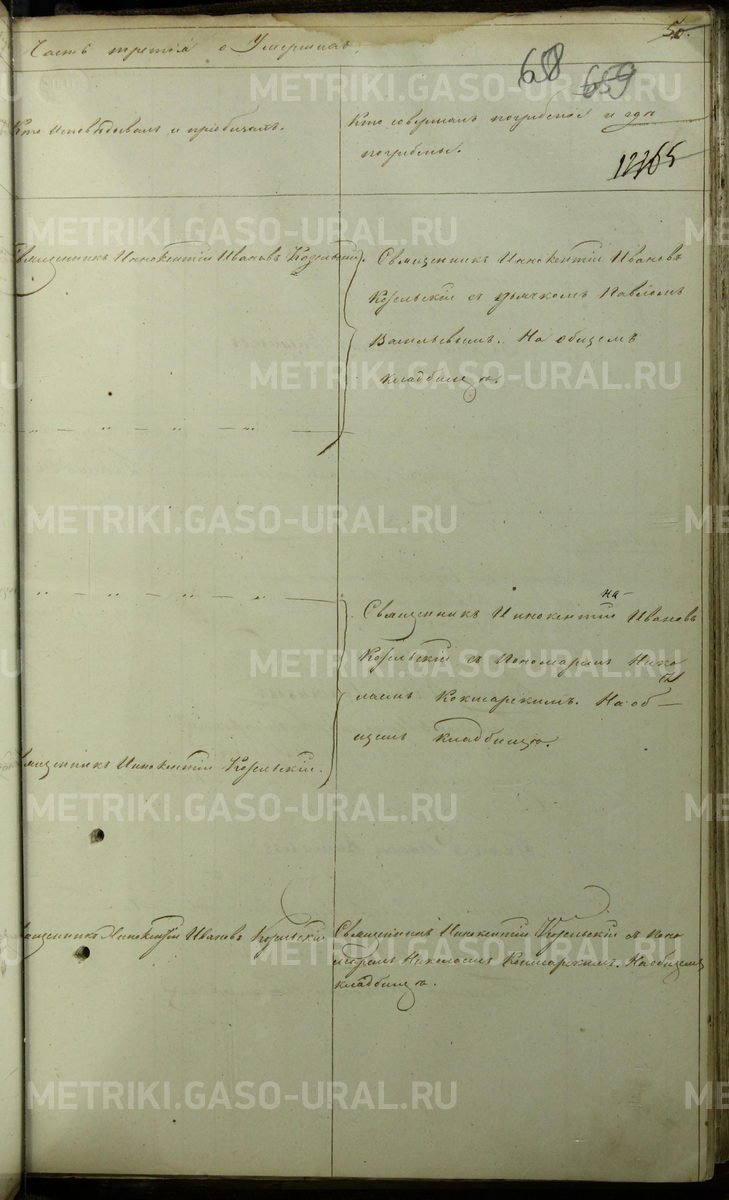 50.
Часть третія о Умершихъ.
68 659
Кто исповѣдывалъ и пріобщалъ.
Кто совершалъ погребеніе и гдѣ
погребены.
METRIKI.GASO-URAL.RU
METRIKI.GASO-URAL.RU
Священникъ Иннокентій Ивановъ Козельскій.
Священникъ Иннокентій Ивановъ
Козельскій съ дьячкомъ Павломъ
Васильевымъ. На общемъ
кладбищѣ.
METRIKI.GASO-URAL.RU
METRIKI.GASO-URAL.RU
METRIKI.GASO-URAL.RU
на
Священникъ Иннокентій Ивановъ
Козельскій съ Пономаремъ Нико
лаемъ Кокшарскимъ. На об-
щемъ кладбищѣ.
METRIKI.GASO-URAL.RU
Священникъ Иннокентій Козельскій.
METRIKI.GASO-URAL.RU
METRIKI.GASO-URAL.RU
Священникъ Иннокентій Ивановъ Козельскій
Священникъ Иннокентій Козельскій съ Поно
маремъ Николаемъ Кокшарскимъ. На общемъ
кладбищѣ.
METRIKI.GASO-URAL.RU